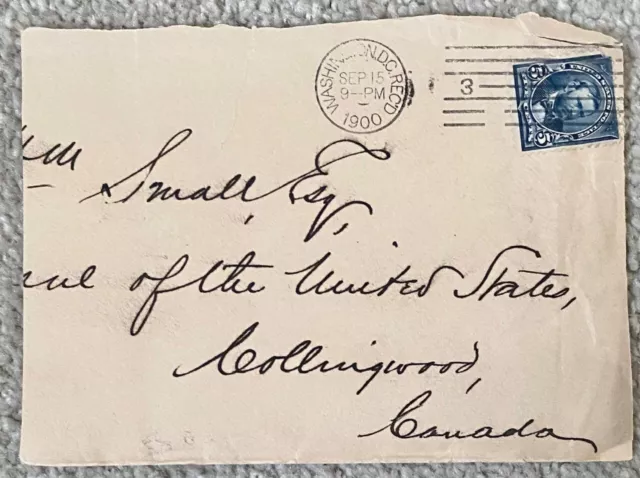 WASHINGTON.D.C. REC'D
SEP 15
9--PM
1900
3
5
5
Wm Small, Esq,
of the United States,
Collingwood,
Canada